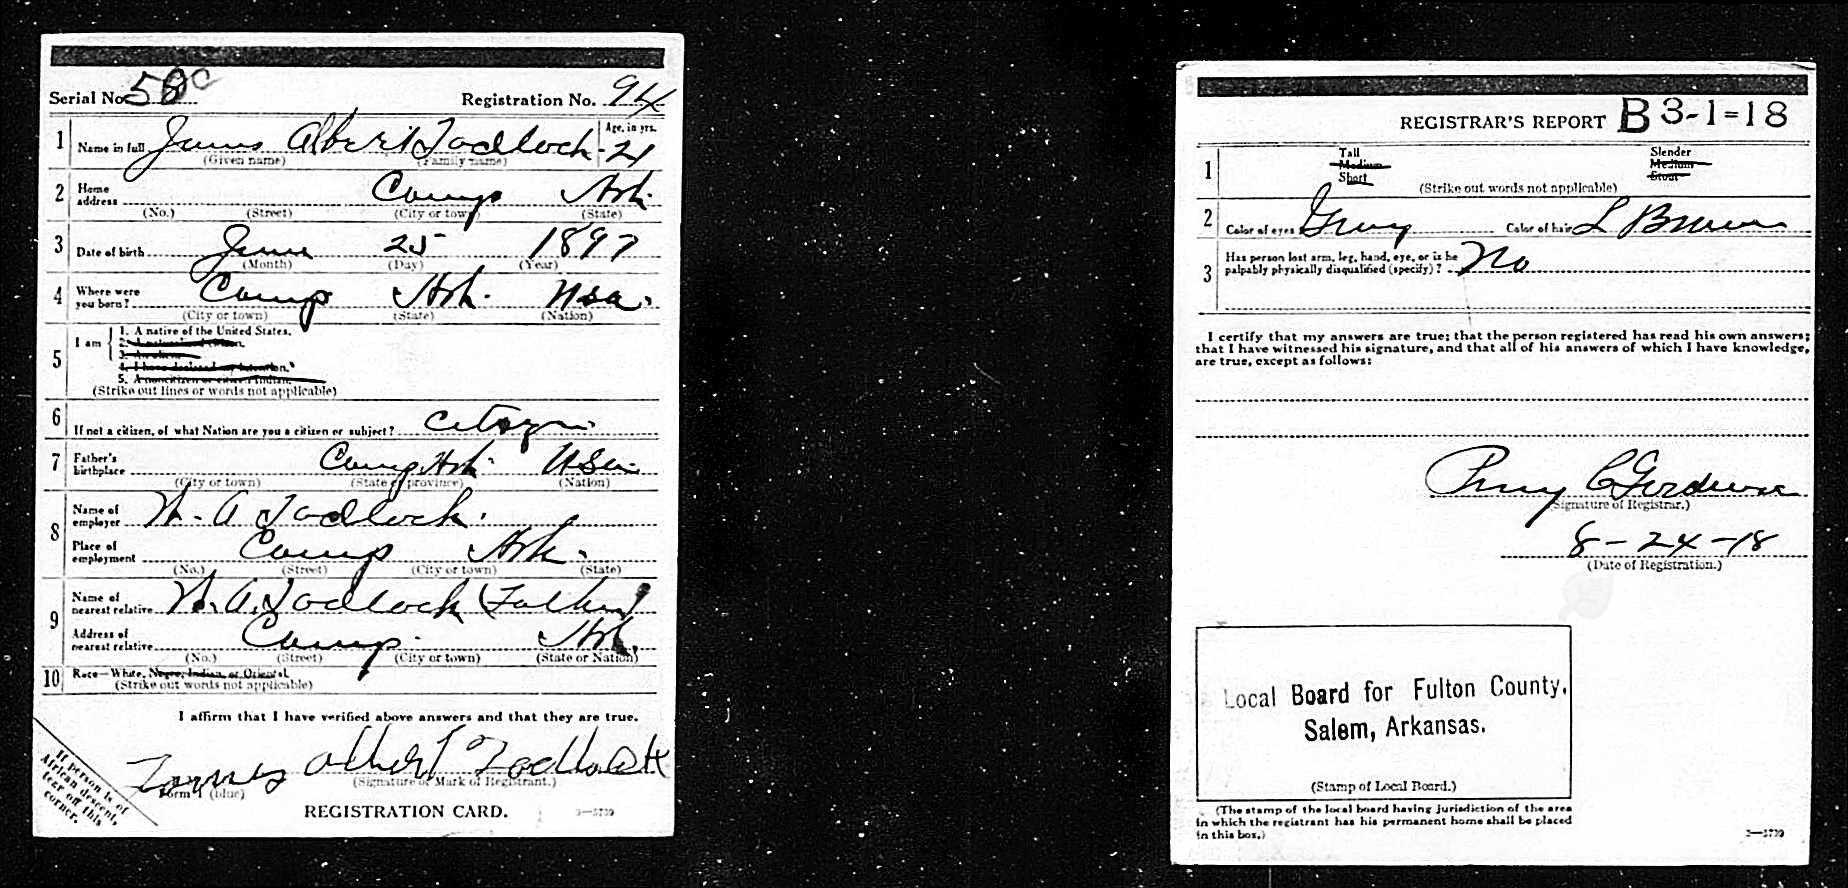 Serial No. 580 Registration No. 94
1 Name in full James Albert Tadlock Age, in yrs. 21
(Given name) (Family name)
2 Home address Camp Ark.
(No.) (Street) (City or town) (State)
3 Date of birth June 25 1897
(Month) (Day) (Year)
4 Where were you born? Camp Ark. Usa.
(City or town) (State) (Nation)
5 I am
1. A native of the United States.
2. A naturalized citizen.
3. An alien.
4. I have declared my intention.
5. A noncitizen or citizen Indian.
(Strike out lines or words not applicable)
6 If not a citizen, of what Nation are you a citizen or subject?
7 Father's birthplace Camp Ark. USa
(City or town) (State or province) (Nation)
8 Name of employer A Tadlock.
Place of employment Camp Ark.
(No.) (Street) (City or town) (State)
9 Name of nearest relative A. Tadlock (Father)
Address of nearest relative Camp. Ark.
(No.) (Street) (City or town) (State or Nation)
10 Race—White, Negro, Indian, or Oriental.
(Strike out words not applicable)
I affirm that I have verified above answers and that they are true.
James Albert Tadlock
(Signature or Mark of Registrant.)
Form 1 (blue)
REGISTRATION CARD.
3—5739
If person is of
African descent,
tear off this
corner.
REGISTRAR'S REPORT B 3-1=18
1 Tall Slender
Medium Medium
Short Stout
(Strike out words not applicable)
2 Color of eyes Gray Color of hair L Brown
3 Has person lost arm, leg, hand, eye, or is he
palpably physically disqualified (specify)? No
I certify that my answers are true; that the person registered has read his own answers;
that I have witnessed his signature, and that all of his answers of which I have knowledge,
are true, except as follows:
(Signature of Registrar.)
8-24-18
(Date of Registration.)
Local Board for Fulton County,
Salem, Arkansas.
(Stamp of Local Board.)
(The stamp of the local board having jurisdiction of the area
in which the registrant has his permanent home shall be placed
in this box.)
3—5739